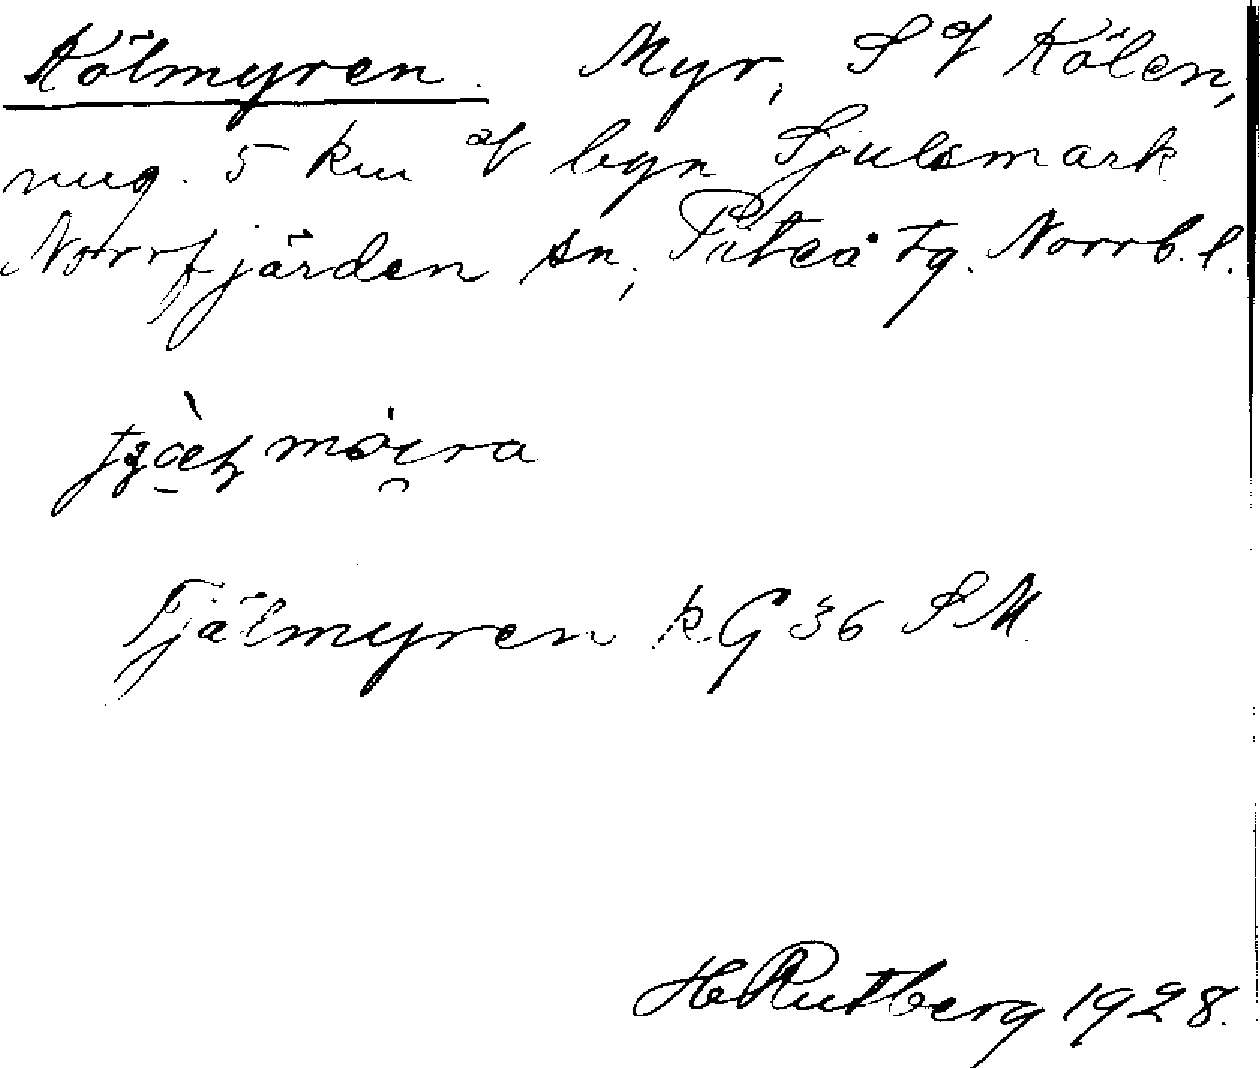 Kölmyren. Myr, S of Kölen,
nug. 5 km of byn Sjulsmark
Norrfjärden sn, Piteå tg. Norrb. l.
Tjälmyren kG 36 SM
H Rutberg 1928.